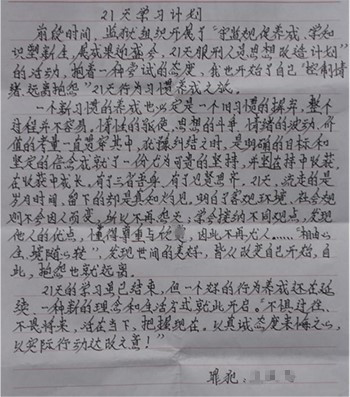 21天学习计划
前段时间，监狱组织开展了“守监规促养成、学知
识塑新生，展成果迎盛会，21天服刑人员思想改造计划”
的活动，抱着一种尝试的态度，我也开始了自己“控制情
绪、远离抱怨”21天行为习惯养成之旅。
一个新习惯的养成也必定是一个旧习惯的摒弃，整个
过程并不容易。惰性的驱使、思想的斗争、情绪的波动、价
值的考量一直贯穿其中，犹豫纠结之时，是明确的目标和
坚定的信念成就了一份尤为可贵的坚持，并在坚持中收获，
在收获中成长。有了言者，有了见贤思齐，21天，流走的是
岁月时间，留下的却是真知灼见。明白了客观环境、社会规
则不会因人而变，所以不再怨天；学会接纳不同观点，发现
他人的优点，懂得尊重与，因此不再尤人……“相由心
生，境随心转”，发现世间的美好，皆从改变自己开始，自
此，抱怨也就远离。
21天的学习虽已结束，但一个好的行为养成还在延
续，一种新的理念和生活方式就此开启。“不惧过往、
不畏将来，活在当下，把握现在。以真诚态度来悔之心，
以实际行动达改之意！”
罪犯：